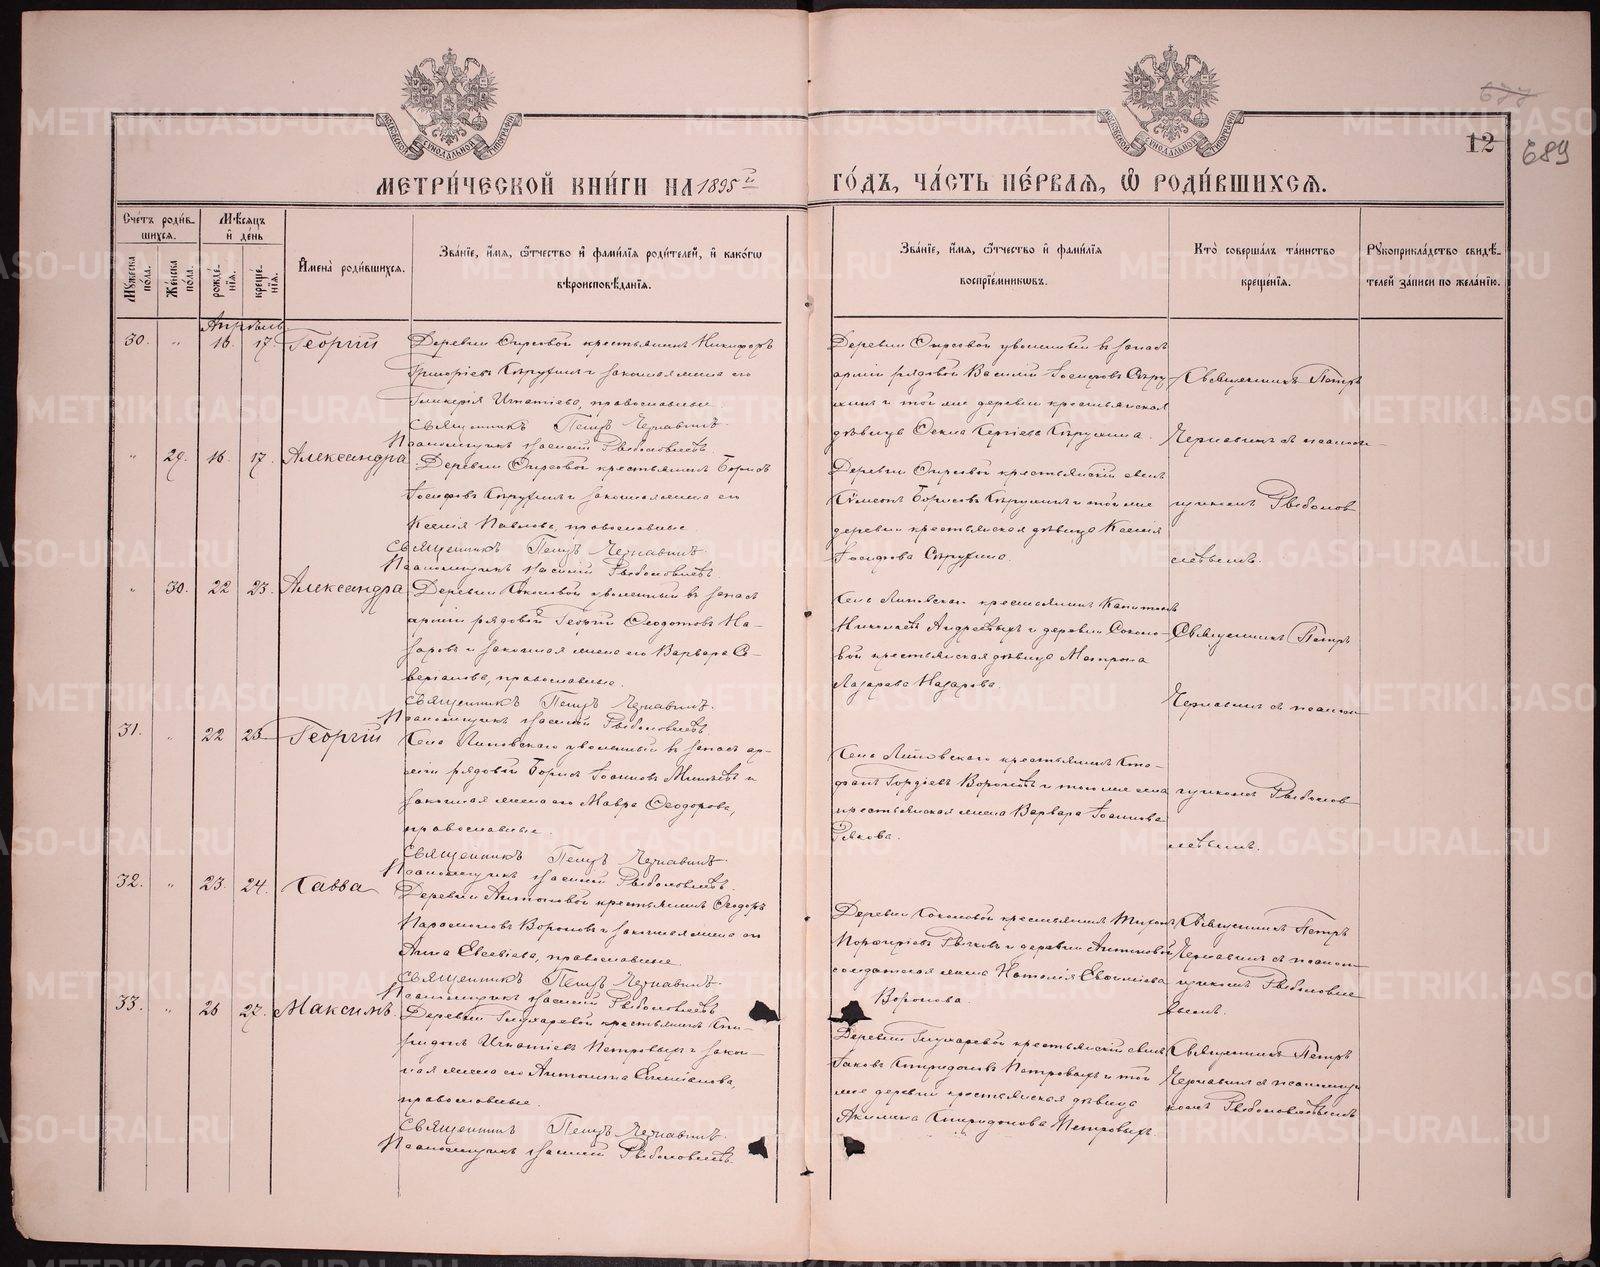 677
12
689
МЕТРИ́ЧЕСКОЙ КНИ́ГИ НА 1895й ГО́ДЪ, ЧА́СТЬ ПЕ́РВАѦ, Ѽ РОДИ́ВШИХСѦ.
Сче́тъ роди́в-
шихсѧ.
Му́жеска по́ла.
Же́нска по́ла.
Мѣ́сѧцъ и҆ де́нь
рожде́-нїѧ.
креще́-нїѧ.
И҆мена̀ роди́вшихсѧ.
Зва́нїе, и҆́мѧ, ѻ҆́тчество и҆ фами́лїѧ роди́телей, и҆ како́гѡ
вѣроисповѣ́данїѧ.
Зва́нїе, и҆́мѧ, ѻ҆́тчество и҆ фами́лїѧ
воспрїе́мникѡвъ.
Кто̀ соверша́лъ та́инство
креще́нїѧ.
Рꙋкоприкла́дство свидѣ́-
телей за́писи по жела́нїю.
Апрѣль
30. " 16. 17 Георгій
Деревни крестьянинъ Никифоръ
Григоріевъ и законная жена его
Гликерія Игнатіева, православные.
Священникъ Петръ Чернавинъ.
Псаломщикъ Василій Рыболовлевъ.
Деревни уволенный въ запасъ
арміи рядовой Василій Іосифовъ
и той же деревни крестьянская
дѣвица Сергіева
Священникъ Петръ
Чернавинъ съ псалом-
щикомъ Рыболов
левымъ.
" 29. 16. 17. Александра
Деревни крестьянинъ Борисъ
Іосифовъ и законная жена его
Ксенія Павлова, православные.
Священникъ Петръ Чернавинъ.
Псаломщикъ Василій Рыболовлевъ.
Деревни крестьянскій сынъ
Сѵмеонъ Борисовъ и той же
деревни крестьянская дѣвица Ксенія
Іосифова
" 30. 22 23. Александра
Деревни Соколовой уволенный въ запасъ
арміи рядовой Георгій Ѳеодотовъ На-
заровъ и законная жена его Варвара Се-
веріанова, православные.
Священникъ Петръ Чернавинъ.
Псаломщикъ Василій Рыболовлевъ.
Села Липовскаго крестьянинъ Капитонъ
Николаевъ Андреевыхъ и деревни Соколо-
вой крестьянская дѣвица Матрона
Лазарева Назарова.
Священникъ Петръ
Чернавинъ съ псалом-
щикомъ Рыболов
левымъ.
31. " 22 23 Георгій
Села Липовскаго уволенный въ запасъ ар-
міи рядовой Борисъ Іоанновъ и
законная жена его Мавра Ѳеодорова,
православные.
Священникъ Петръ Чернавинъ.
Псаломщикъ Василій Рыболовлевъ.
Села Липовскаго крестьянинъ Сте-
фанъ Гордіевъ Вороновъ и того же села
крестьянская жена Варвара Іоаннова
Рякова.
32. " 23. 24. Савва
Деревни Антоновой крестьянинъ Ѳеодоръ
Парамоновъ Вороновъ и законная жена его
Анна Евсевіева, православные.
Священникъ Петръ Чернавинъ.
Псаломщикъ Василій Рыболовлевъ
Деревни Соколовой крестьянинъ Тихонъ
Порфиріевъ Рычковъ и деревни Антоновой
солдатская жена Наталія Евѳиміева
Воронова.
Священникъ Петръ
Чернавинъ съ псалом-
щикомъ Рыболовле
вымъ.
33. " 26 27. Максимъ.
Деревни Глухаревой крестьянинъ Спи-
ридонъ Игнатіевъ Петровыхъ и закон-
ная жена его Антонина Епифанова,
православные.
Священникъ Петръ Чернавинъ.
Псаломщикъ Василій Рыболовлевъ.
Деревни Глухаревой крестьянскій сынъ
Іаковъ Спиридоновъ Петровыхъ и той
же деревни крестьянская дѣвица
Акилина Спиридонова Петровыхъ.
Священникъ Петръ
Чернавинъ съ псаломщи-
комъ Рыболовлевымъ
METRIKI.GASO-URAL.RU